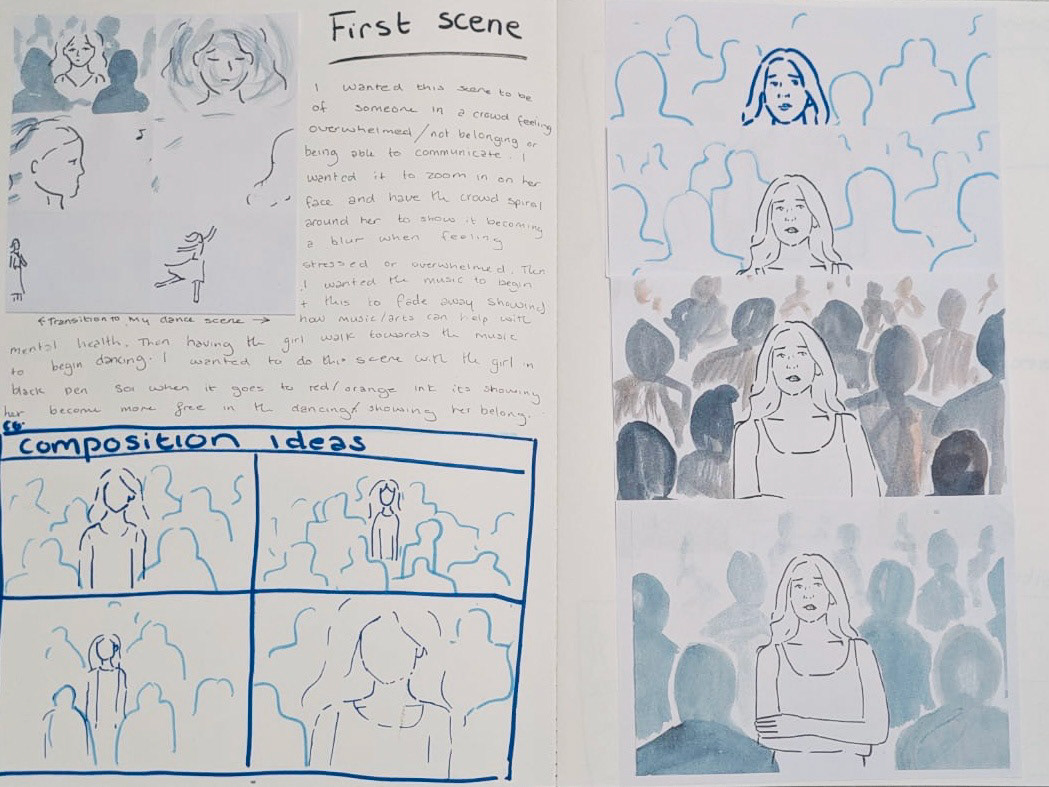 First scene
I wanted this scene to be
of someone in a crowd feeling
overwhelmed/not belonging or
being able to communicate. I
wanted it to zoom in on her
face and have the crowd spiral
around her to show it becoming
a blur when feeling
stressed or overwhelmed. Then
I wanted the music to begin
+ this to fade away showing
how music/arts can help with
← Transition to my dance scene →
mental health. Then having the girl walk towards the music
to begin dancing. I wanted to do this scene with the girl in
black pen so when it goes to red/orange ink its showing
her become more free in the dancing/showing her belong.
composition ideas